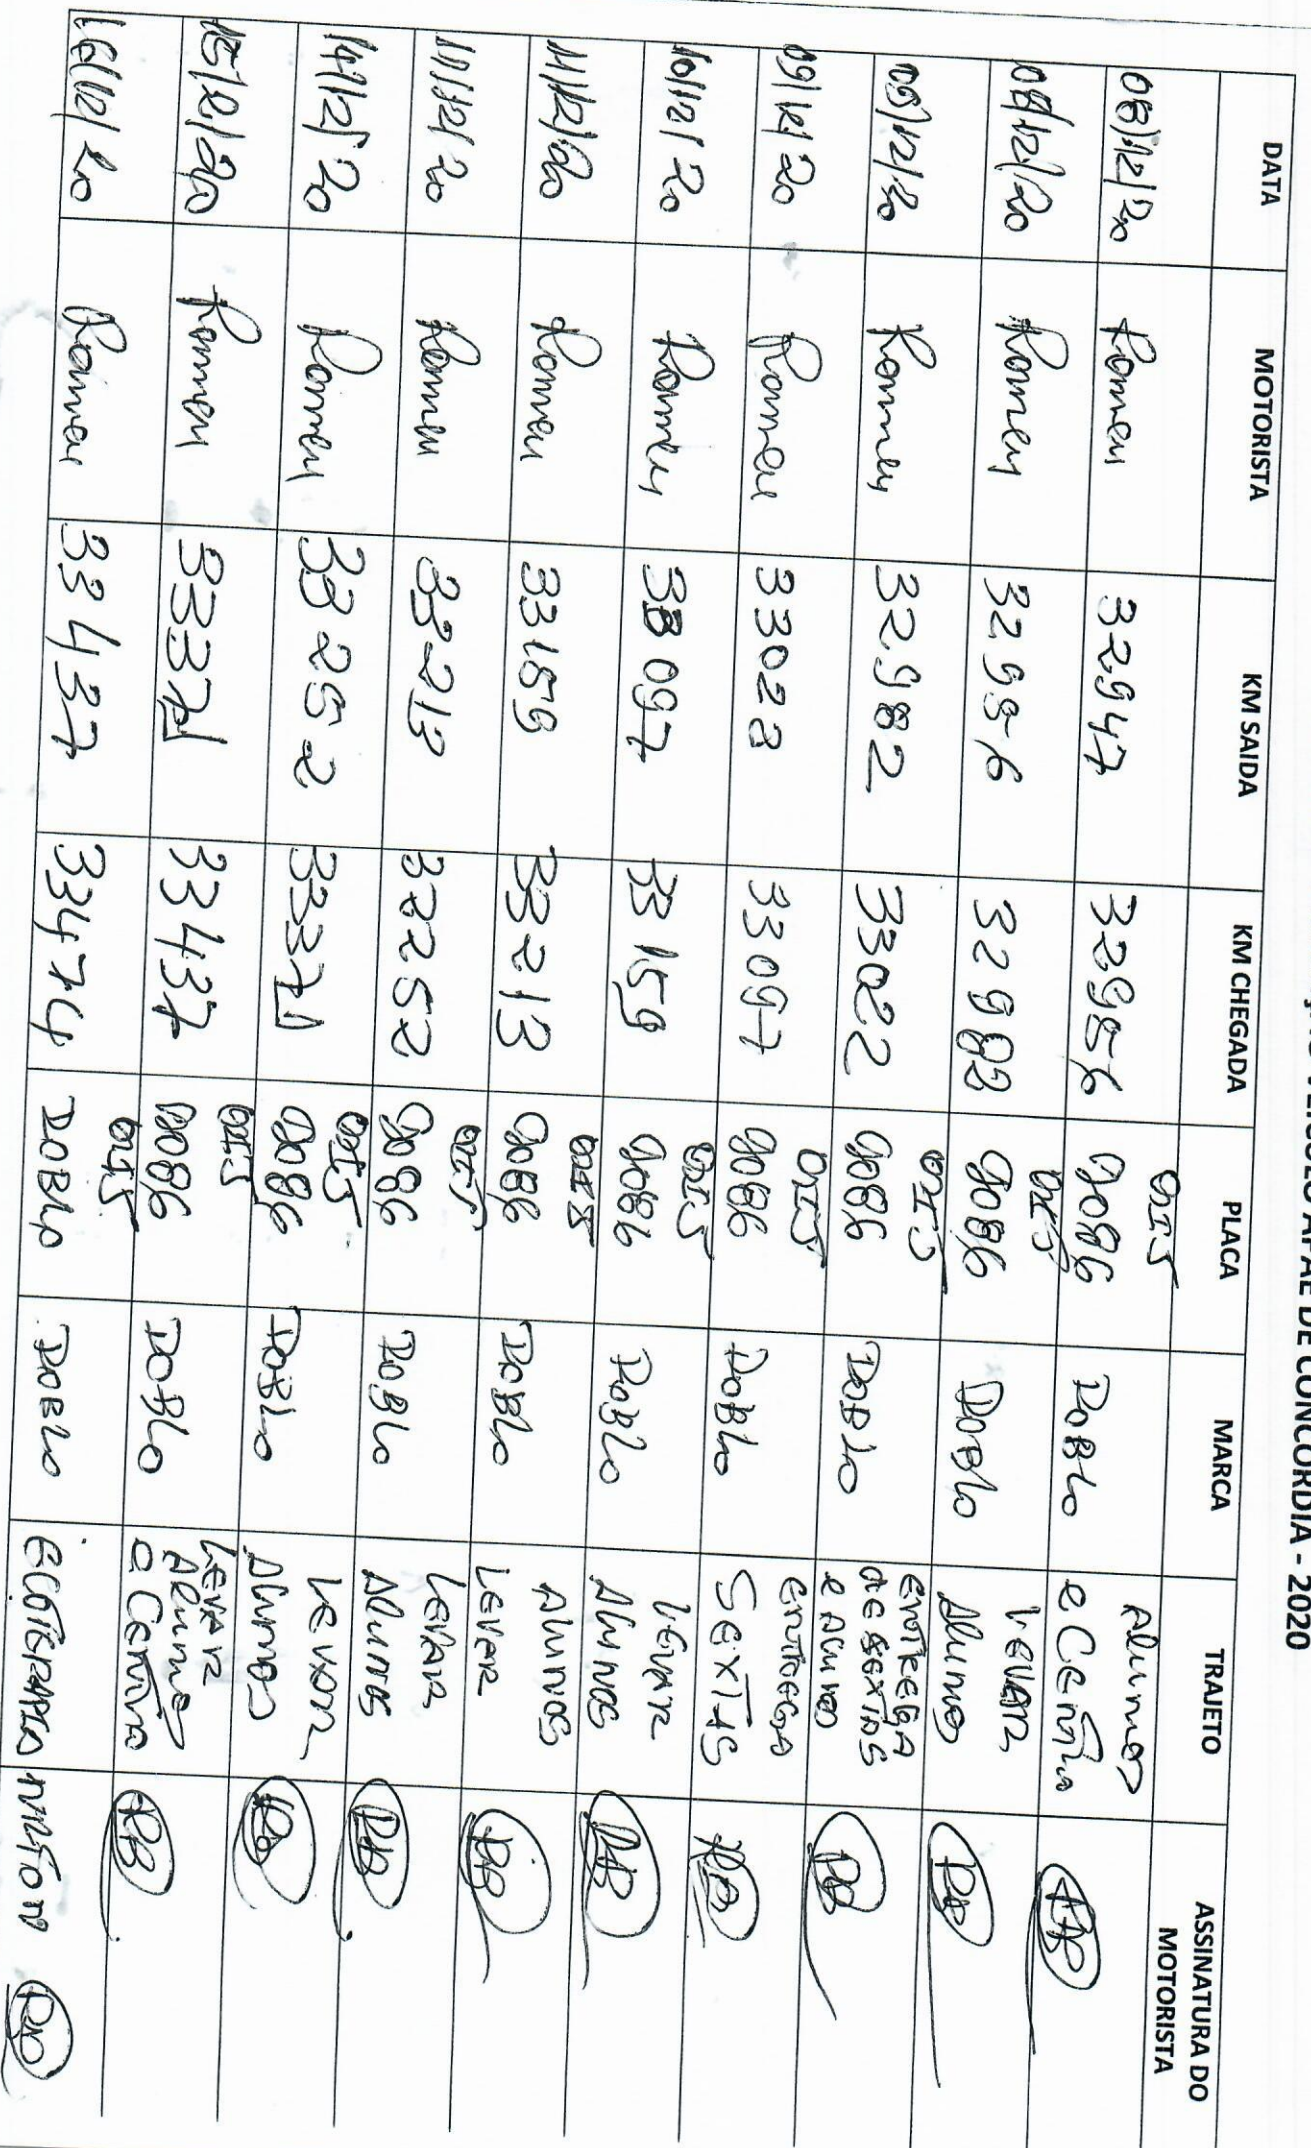 VEICULO APAE DE CONCORDIA - 2020
DATA MOTORISTA KM SAIDA KM CHEGADA PLACA MARCA TRAJETO ASSINATURA DO MOTORISTA
08/12/20 Romeu 32947 32956 QIJ 9086 DOBLO Alunos e Centro
08/12/20 Romeu 32956 32982 QIJ 9086 DOBLO LEVAR Alunos
09/12/20 Romeu 32982 33022 QIJ 9086 DOBLO ENTREGA DE SEXTAS e ALUNOS
09/12/20 Romeu 33023 33097 QIJ 9086 DOBLO ENTREGA SEXTAS
10/12/20 Romeu 33097 33159 QIJ 9086 DOBLO LEVAR ALUNOS
11/12/20 Romeu 33159 33213 QIJ 9086 DOBLO ALUNOS LEVAR
11/12/20 Romeu 33213 33252 QIJ 9086 DOBLO LEVAR ALUNOS
14/12/20 Romeu 33252 33371 QIJ 9086 DOBLO LEVAR ALUNOS
15/12/20 Romeu 33371 33437 QIJ 9086 DOBLO LEVAR Alunos e Centro
16/12/20 Romeu 33437 33474 QIJ DOBLO DOBLO ECOTERAPIA